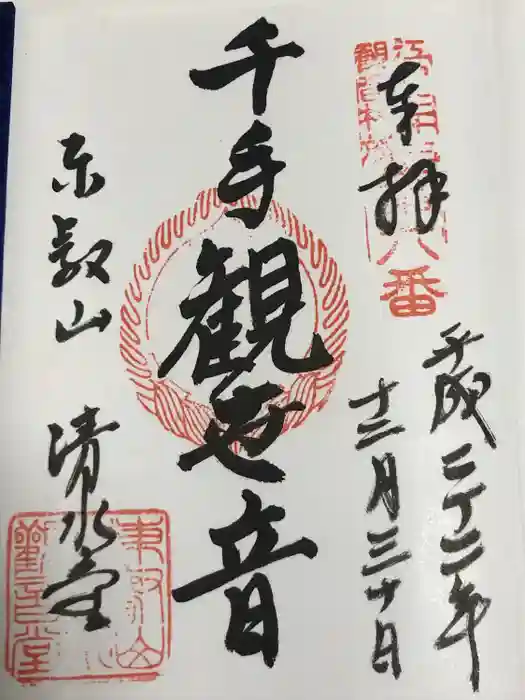 奉拝
番
平成二十二年
十二月三十日
千手観世音
東叡山
清水堂
東叡山
觀音堂